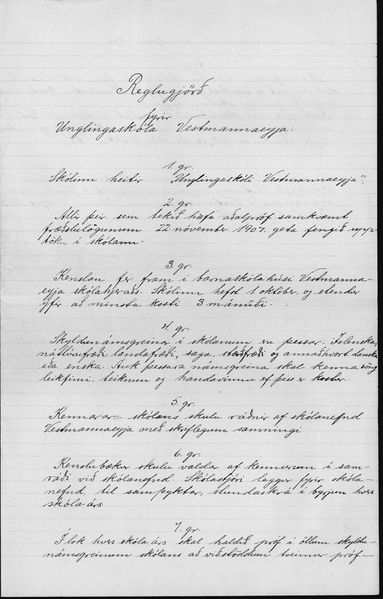 Reglugjörð
fyrir
Unglingaskóla Vestmannaeyja.
1. gr.
Skólinn heitir „Unglingaskóli Vestmannaeyja".
2. gr.
Allir þeir sem tekið hafa aðalpróf samkvæmt
fræðslulögunum 22 november 1907. geta fengið upp-
töku í skólann.
3. gr.
Kenslan fer fram í barnaskólahúsi Vestmanna-
eyja skólahjeraðs. Skólinn hefst 1 október og stendur
yfir að minsta kosti 3 mánuði.
4. gr.
Skyldunámsgreinar í skólanum eru þessar: Íslenska,
náttúrufræði, landafræði, saga, stærðfræði og annaðhvort danska
eða enska. Auk þessara námsgreina skal kenna söng
leikfimi, teiknun og handavinnu ef þess er kostur.
5. gr.
Kennarar skólans skulu ráðnir af skólanefnd
Vestmannaeyja með skriflegum samningi
6. gr.
Kenslubækur skulu valdar af kennurum í sam-
ráði við skólanefnd. Skólastjóri leggur fyrir skóla-
nefnd, til samþyktar, stundaskrá í byrjun hvers
skólaárs
7. gr.
Í lok hvers skólaárs skal haldið próf í öllum skyldu-
námsgreinum skólans að viðstöddum tveimur próf-